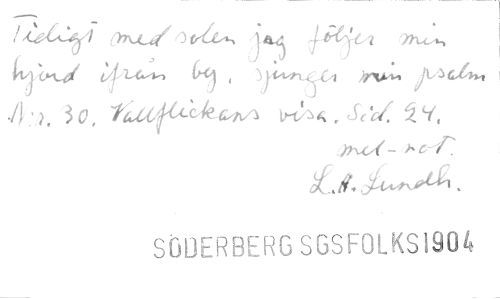 Tidigt med solen jag följer min
hjord ifrån by, sjunger min psalm
N:r. 30. Vallflickans visa. Sid. 24.
mel-not.
L. A. Lundh.
SÖDERBERG SGSFOLKS1904